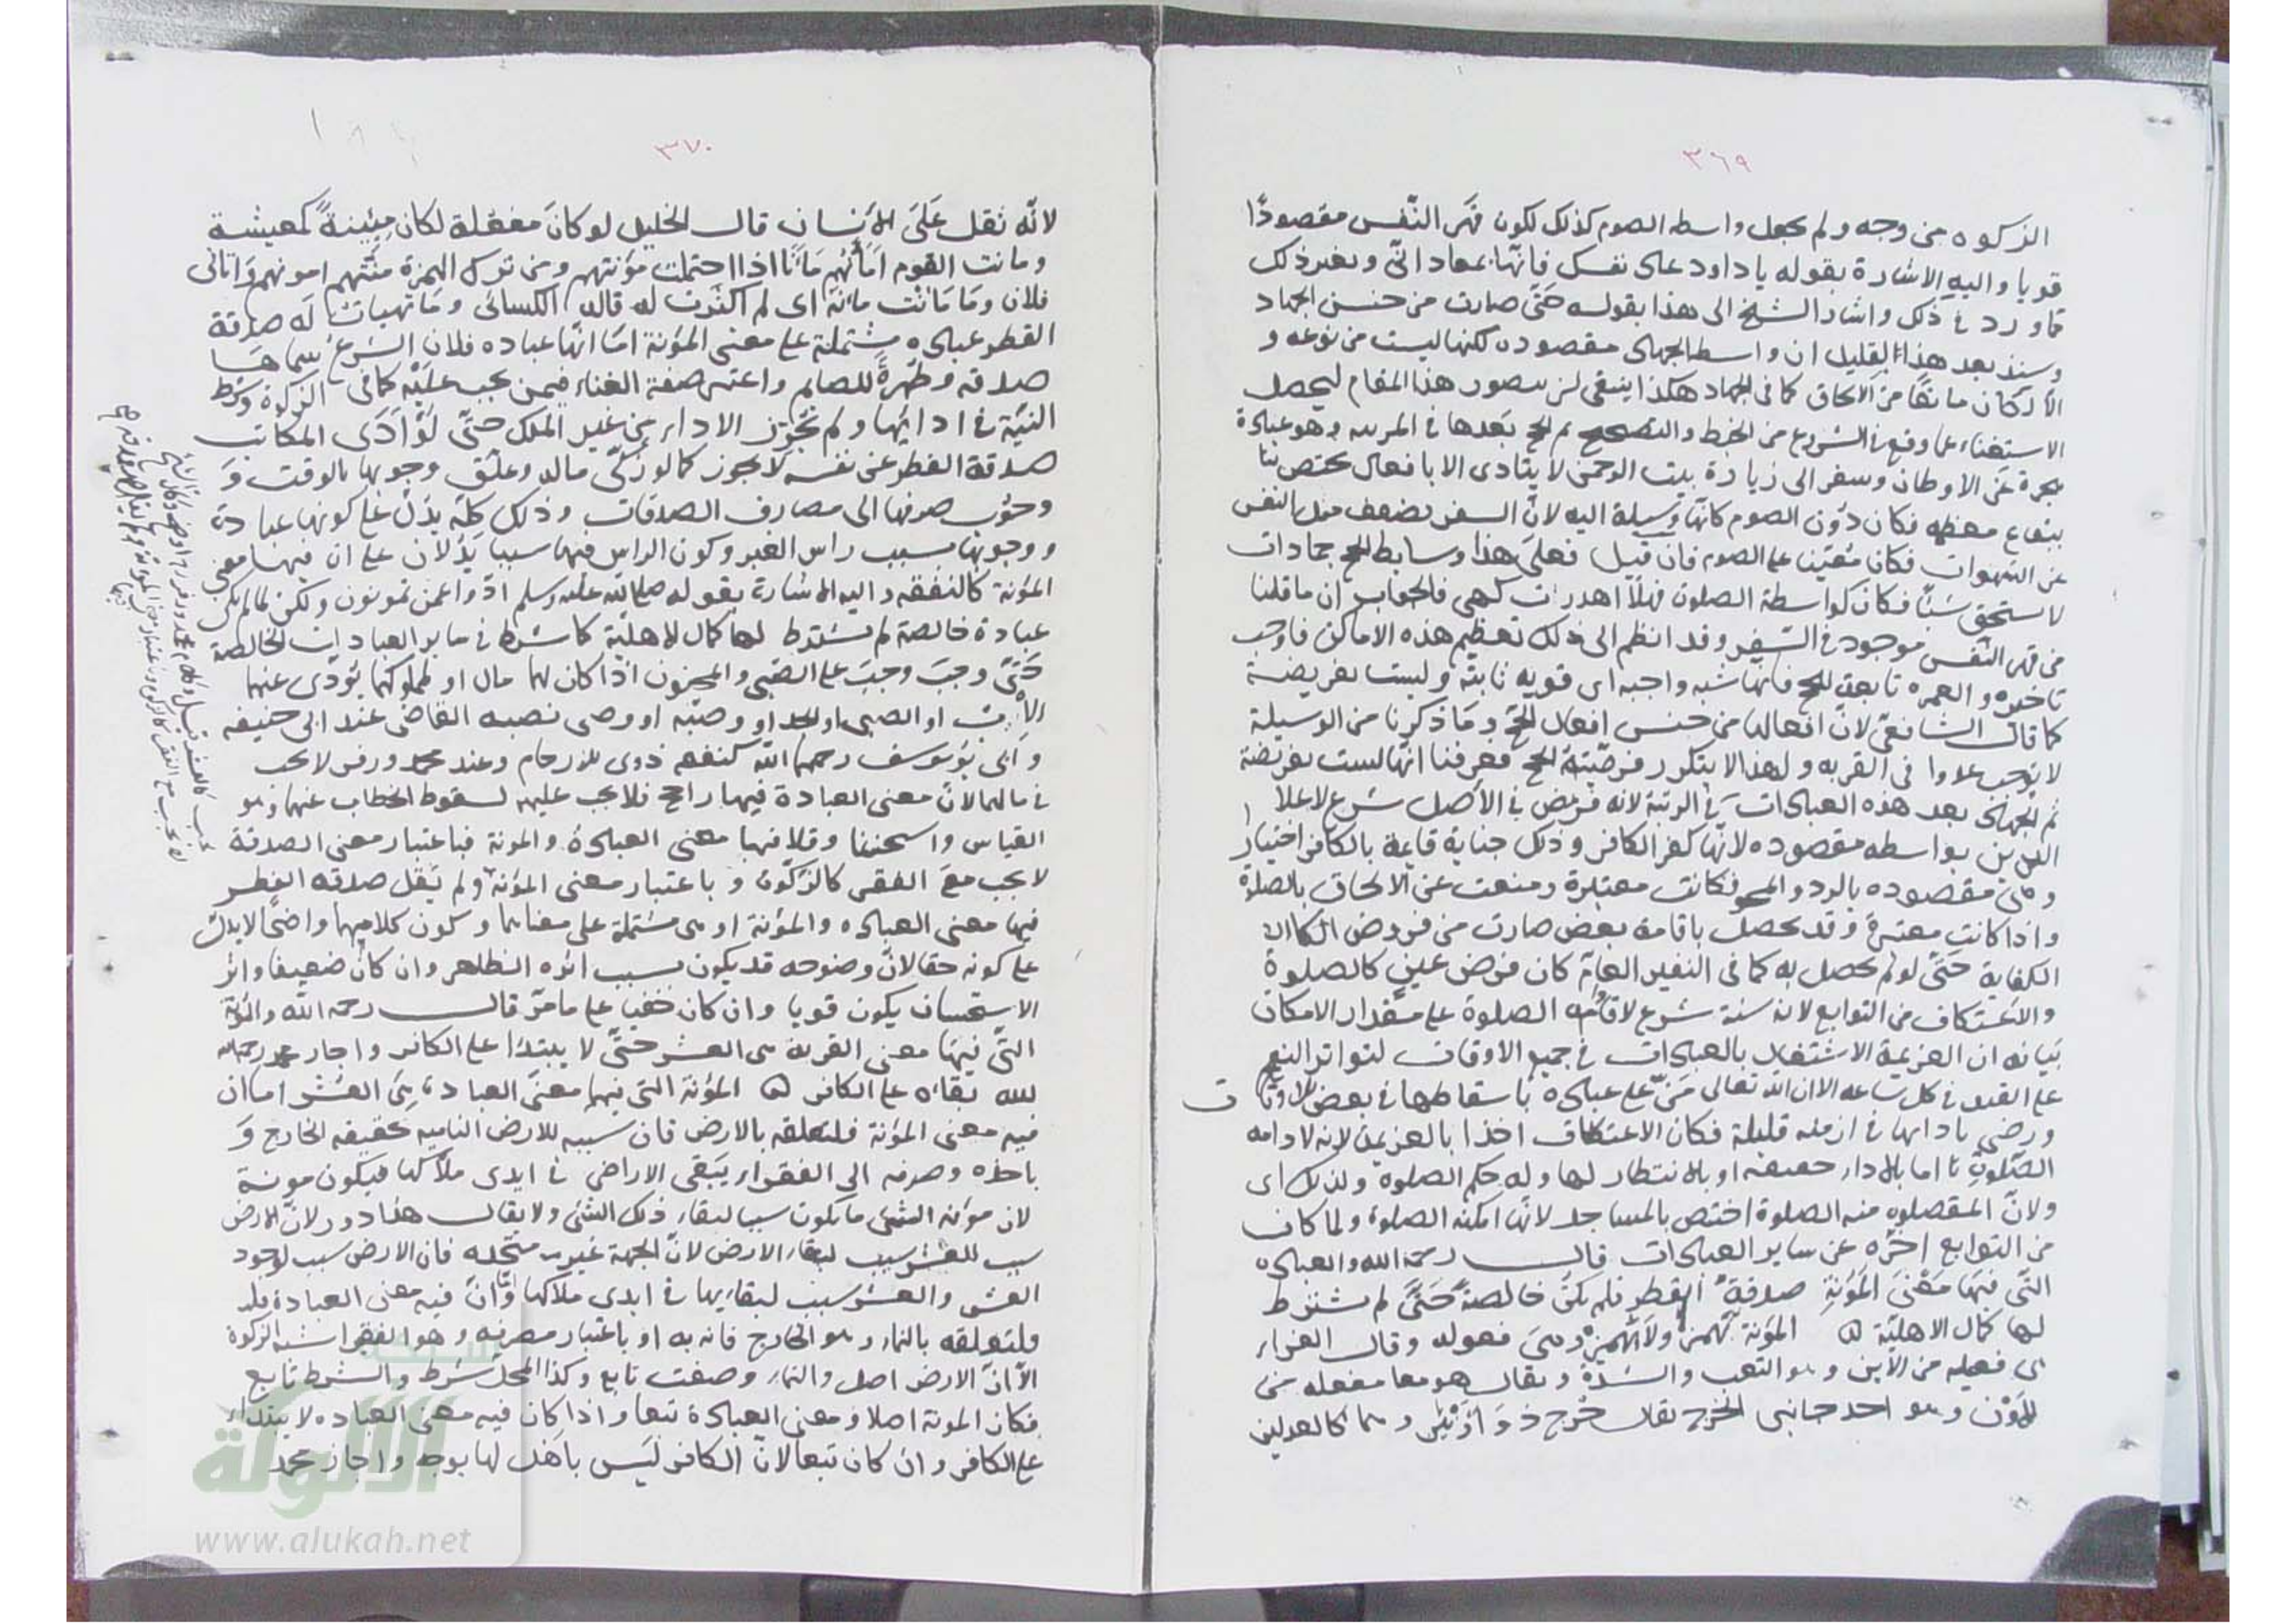 ٣٦٩
الزكوه من وجه ولم يجعل واسطه الصوم كذلك لكون قهر النّفس مقصودًا
قويا واليه الاشارة بقوله يا داود عاد نفسك فانّها بمعاداتى وبغير ذلك
مما ورد في ذلك واشار الشيخ الى هذا بقوله حتّى صارت من جنس الجهاد
وسنذ بعد هذا القليل ان واسط الجهاد مقصوده لكنها ليست من نوعه و
الأركان مانعًا من الالحاق كما فى الجهاد هكذا ينبغى ان يتصور هذا المقام ليحصل
الاستغناء عما وقع في الشروع من الخبط والتصحيح ثم الحج بعدها في المرتبه وهو عبادة
هجرة عن الاوطان وسفر الى زيارة بيت الرحمن لا يتادى الا بافعال يختص بها
ببقاع معظمه فكان دون الصوم كانّها وسيلة اليه لانّ السفر يضعف ميل النفس
عن الشهوات فكان معينا على الصوم فان قيل فعلى هذا وسايط الحج جمادات
لا يستحق شيًا فكان كواسطة الصلوة فهلّا اهدرت كهى فالجواب ان ما قلنا
من قهر النّفس موجود في السّفر وقد انظم الى ذلك تعظيم هذه الاماكن فاوجب
تاخيره والعمره تابعة للحج فانها شبه واجبه اى قويه ثابتة وليست بفريضة
كما قال الشافعىّ لانّ افعالها من جنس افعال الحج وما ذكرنا من الوسيلة
لا يوجب علاوا فى القربه ولهذا لا يتكرر فرضيّة الحج فعرفنا انّها ليست بفريضة
ثم الجهاد بعد هذه العبادات فى الرتبة لانه فرض في الأصل شرع لاعلا
الدين بواسطه مقصوده لانّها كفر الكافر وذلك جناية قايمة بالكافر اختيارا
وهى مقصوده بالرد والمحو فكانت معتبرة ومنعت عن الالحاق بالصلاة
واذا كانت معتبرة وقد يحصل باقامة بعض صارت من فروض الكفاية
الكفاية حتّى لو لم يحصل به كما فى النفير العامّ كان فرض عين كالصلوة
والاعتكاف من التوابع لانه سنة شرع لاقامه الصلوة على مقدار الامكان
بيانه ان العزيمة الاشتغال بالعبادات في جميع الاوقات لتواتر النعم
على العبد في كل ساعه الا ان الله تعالى منّ على عباده باسقاطها في بعض الاوقات
ورضى بادائها في ازمنه قليلة فكان الاعتكاف اخذا بالعزيمة لانه لادامه
الصّلوة امّا بالادا حقيقه او بالانتظار لها وله حكم الصلوة ولذلك اى
ولانّ المقصود منه الصلوة اختص بالمساجد لانّها امكنه الصلوة ولما كان
من التوابع اخّره عن ساير العبادات قال رحمه الله والعباده
التّى فيها معنى المؤنة صدقة الفطر فلم يكن خالصةً حتّى لم يشترط
لها كمال الاهليّة ه المؤنة تهمز ولا تهمز وهى فعوله وقال الفراء
هى فعيله من الأين وهو التعب والشدّة ويقال هو معا مفعله من
للأَوْن وهو احد جانبى الخرج يقال خُرج ذو أَوْنَيْن وهما كالعدلين
٣٧٠
لانّه ثقل على الانسان قال الخليل لو كان مفعلة لكان مئينةً كمعيشة
ومانت القوم أمأنهم مأنًا اذا احتملت مؤنتهم ومن ترك الهمزة منتهم امونهم واتانى
فلان وما مانت مانه اى لم اكترث له قال الكسائى وما تهيات له صدقة
الفطر عباده مشتملة على معنى المؤنة امّا انّها عباده فلان الشرع سماها
صدقه وطهرةً للصايم واعتبر صفة الغناء فيمن يجب عليه كما فى الزكوة وشرط
النيّة في ادائها ولم تجوّز الاداء من غير الملك حتّى لو أدّى المكاتب
صدقة الفطر عن نفسه لا يجوز كما لو زكّى ماله وعلّق وجوبها بالوقت و
وجوب صرفها الى مصارف الصدقات وذلك كلّه يدلّ على كونها عبادة
ووجوبها بسبب راس الغير وكون الراس فيها سببا يدلان على ان فيها معنى
المؤنة كالنفقه واليه الاشارة بقوله صلى الله عليه وسلم ادّوا عمن تمونون ولكن لما لم يكن
عبادة خالصة لم يشترط لها كمال الاهليّة كما شرط في ساير العبادات الخالصة
حتّى وجب وجبَ على الصّبى والمجنون اذا كان لهما مال او مملوكهما يؤدى عنهما
الأب او الصبى او الجد او وصيّه او وصى نصبه القاضى عند ابى حنيفه
وابى يوسف رحمهما الله كنفقه ذوى الارحام وعند محمد وزفر لا يجب
في مالهما لانّ معنى العبادة فيها راجح فلا يجب عليهما لسقوط الخطاب عنهما وهو
القياس واستحسنا وقلا فيها معنى العبادة والمونة فباعتبار معنى الصدقة
لا يجب مع الفقر كالزكوة وباعتبار معنى المؤنة ولم يقل صدقه الفطر
فيها معنى العباده والمؤنة او هى مشتملة على معناهما وكون كلامهما واضحًا لا يدل
على كونه حقا لانّ وضوحه قد يكون بسبب اثره الظاهر وان كان ضعيفا واثر
الاستحسان يكون قويا وان كان خفيا على ما مرّ قال رحمه الله والمؤنة
التّى فيها معنى القربة هى العشر حتّى لا يبتدا على الكافر واجاز محمد رحمه الله
بقاءه على الكافر ه المؤنة التى فيها معنى العبادة هى العشر اما ان
فيه معنى المؤنة فلتعلقه بالارض فان سببه الارض الناميه بحقيقه الخارج و
باخذه وصرفه الى الفقراء يبقى الاراضى في ايدى ملّاكها فيكون مونة
لان مؤنه الشئ ما يكون سببا لبقاء ذلك الشئ ولا يقال هذا دور لانّ الارض
سبب للعشر سبب لبقاء الارض لانّ الجهة غير متّحده فان الارض سبب لوجود
العشر والعشر سبب لبقائها في ايدى ملاكها وامّا انّ فيه معنى العبادة فلـ
ولتعلقه بالنماء وهو الخارج فانه به او باعتبار مصرفه وهو الفقير اشبه الزكوة
الّا انّ الارض اصل والنماء وصف تابع وكذا المحل شرط والشرط تابع
فكان المونة اصلا ومعنى العبادة تبعا واذا كان فيه معنى العباده لا يبتداء
على الكافر وان كان تبعا لانّ الكافر ليس باهل لها بوجه واجاز محمد
الألوكة
www.alukah.net